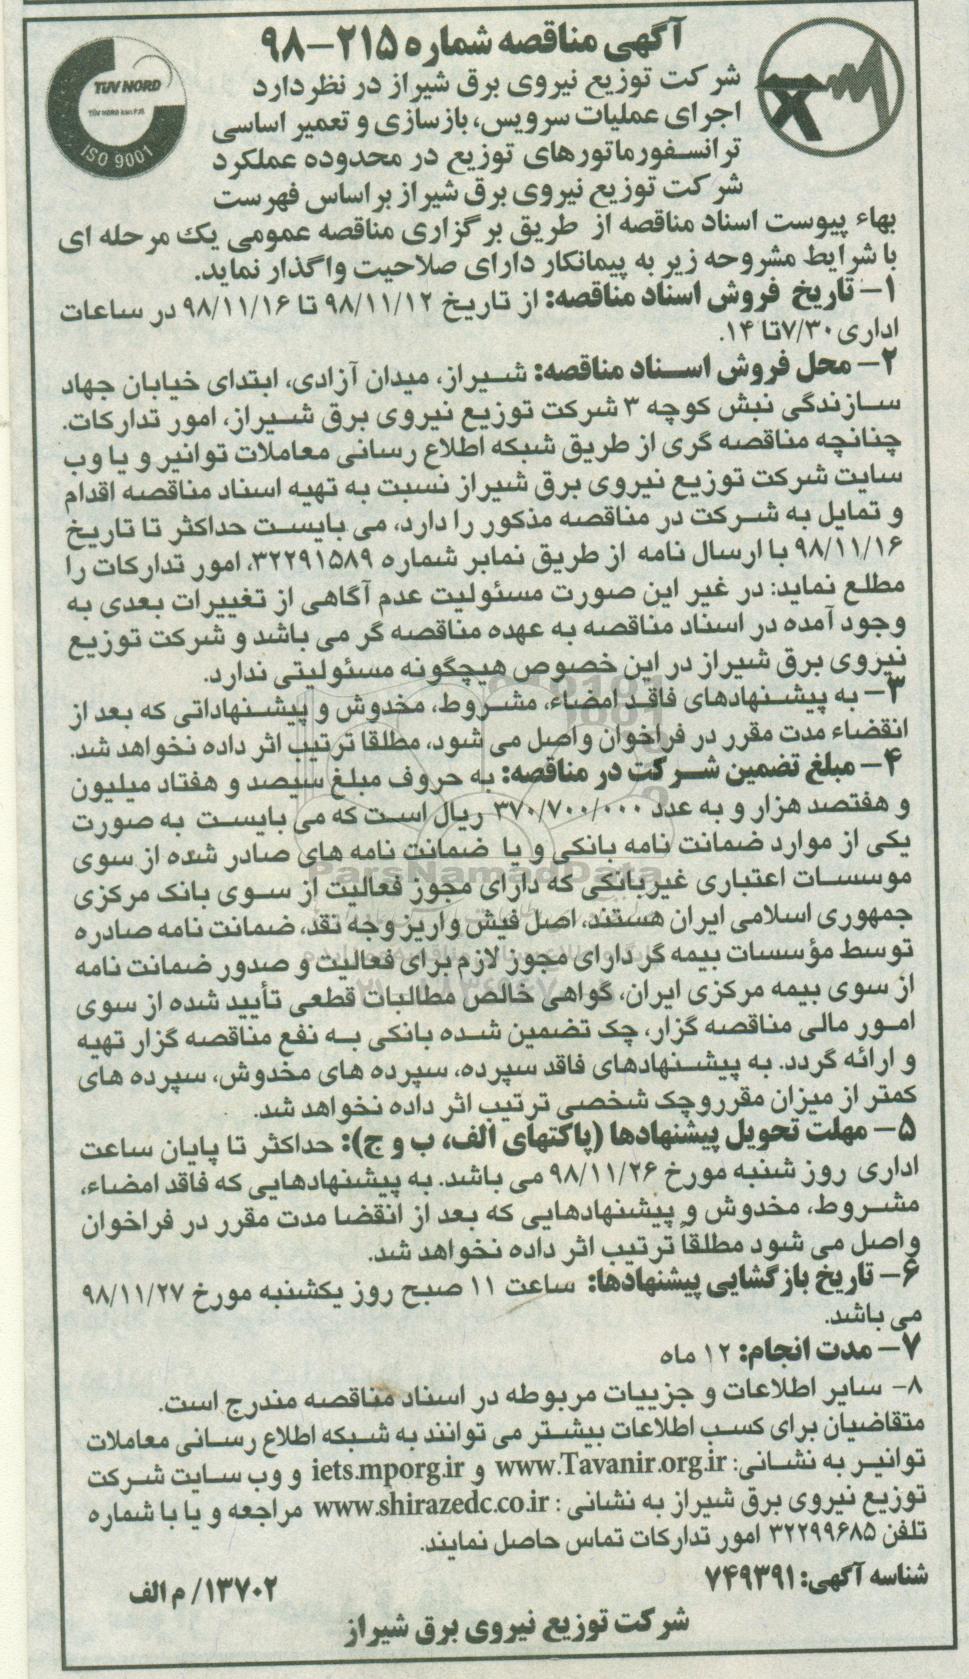 آگهی مناقصه شماره ۲۱۵-۹۸
TUV NORD
ISO 9001
شرکت توزیع نیروی برق شیراز در نظر دارد
اجرای عملیات سرویس، بازسازی و تعمیر اساسی
ترانسفورماتورهای توزیع در محدوده عملکرد
شرکت توزیع نیروی برق شیراز براساس فهرست
بهاء پیوست اسناد مناقصه از طریق برگزاری مناقصه عمومی یک مرحله ای
با شرایط مشروحه زیر به پیمانکار دارای صلاحیت واگذار نماید.
۱- تاریخ فروش اسناد مناقصه: از تاریخ ۹۸/۱۱/۱۲ تا ۹۸/۱۱/۱۶ در ساعات
اداری ۷/۳۰ تا ۱۴.
۲- محل فروش اسناد مناقصه: شیراز، میدان آزادی، ابتدای خیابان جهاد
سازندگی نبش کوچه ۳ شرکت توزیع نیروی برق شیراز، امور تدارکات.
چنانچه مناقصه گری از طریق شبکه اطلاع رسانی معاملات توانیر و یا وب
سایت شرکت توزیع نیروی برق شیراز نسبت به تهیه اسناد مناقصه اقدام
و تمایل به شرکت در مناقصه مذکور را دارد، می بایست حداکثر تا تاریخ
۹۸/۱۱/۱۶ با ارسال نامه از طریق نمابر شماره ۳۲۲۹۱۵۸۹، امور تدارکات را
مطلع نماید: در غیر این صورت مسئولیت عدم آگاهی از تغییرات بعدی به
وجود آمده در اسناد مناقصه به عهده مناقصه گر می باشد و شرکت توزیع
نیروی برق شیراز در این خصوص هیچگونه مسئولیتی ندارد.
۳- به پیشنهادهای فاقد امضاء، مشروط، مخدوش و پیشنهاداتی که بعد از
انقضاء مدت مقرر در فراخوان واصل می شود، مطلقا ترتیب اثر داده نخواهد شد.
۴- مبلغ تضمین شرکت در مناقصه: به حروف مبلغ سیصد و هفتاد میلیون
و هفتصد هزار و به عدد ۳۷۰/۷۰۰/۰۰۰ ریال است که می بایست به صورت
یکی از موارد ضمانت نامه بانکی و یا ضمانت نامه های صادر شده از سوی
موسسات اعتباری غیربانکی که دارای مجوز فعالیت از سوی بانک مرکزی
جمهوری اسلامی ایران هستند، اصل فیش واریز وجه نقد، ضمانت نامه صادره
توسط مؤسسات بیمه گر دارای مجوز لازم برای فعالیت و صدور ضمانت نامه
از سوی بیمه مرکزی ایران، گواهی خالص مطالبات قطعی تأیید شده از سوی
امور مالی مناقصه گزار، چک تضمین شده بانکی به نفع مناقصه گزار تهیه
و ارائه گردد. به پیشنهادهای فاقد سپرده، سپرده های مخدوش، سپرده های
کمتر از میزان مقرر و چک شخصی ترتیب اثر داده نخواهد شد.
۵- مهلت تحویل پیشنهادها (پاکتهای الف، ب و ج): حداکثر تا پایان ساعت
اداری روز شنبه مورخ ۹۸/۱۱/۲۶ می باشد. به پیشنهادهایی که فاقد امضاء،
مشروط، مخدوش و پیشنهادهایی که بعد از انقضا مدت مقرر در فراخوان
واصل می شود مطلقاً ترتیب اثر داده نخواهد شد.
۶- تاریخ بازگشایی پیشنهادها: ساعت ۱۱ صبح روز یکشنبه مورخ ۹۸/۱۱/۲۷
می باشد.
۷- مدت انجام: ۱۲ ماه
۸- سایر اطلاعات و جزییات مربوطه در اسناد مناقصه مندرج است.
متقاضیان برای کسب اطلاعات بیشتر می توانند به شبکه اطلاع رسانی معاملات
توانیر به نشانی: www.Tavanir.org.ir و iets.mporg.ir و وب سایت شرکت
توزیع نیروی برق شیراز به نشانی : www.shirazedc.co.ir مراجعه و یا با شماره
تلفن ۳۲۲۹۹۶۸۵ امور تدارکات تماس حاصل نمایند.
شناسه آگهی: ۷۴۹۳۹۱
۱۳۷۰۲/ م الف
شرکت توزیع نیروی برق شیراز
ParsNamadData